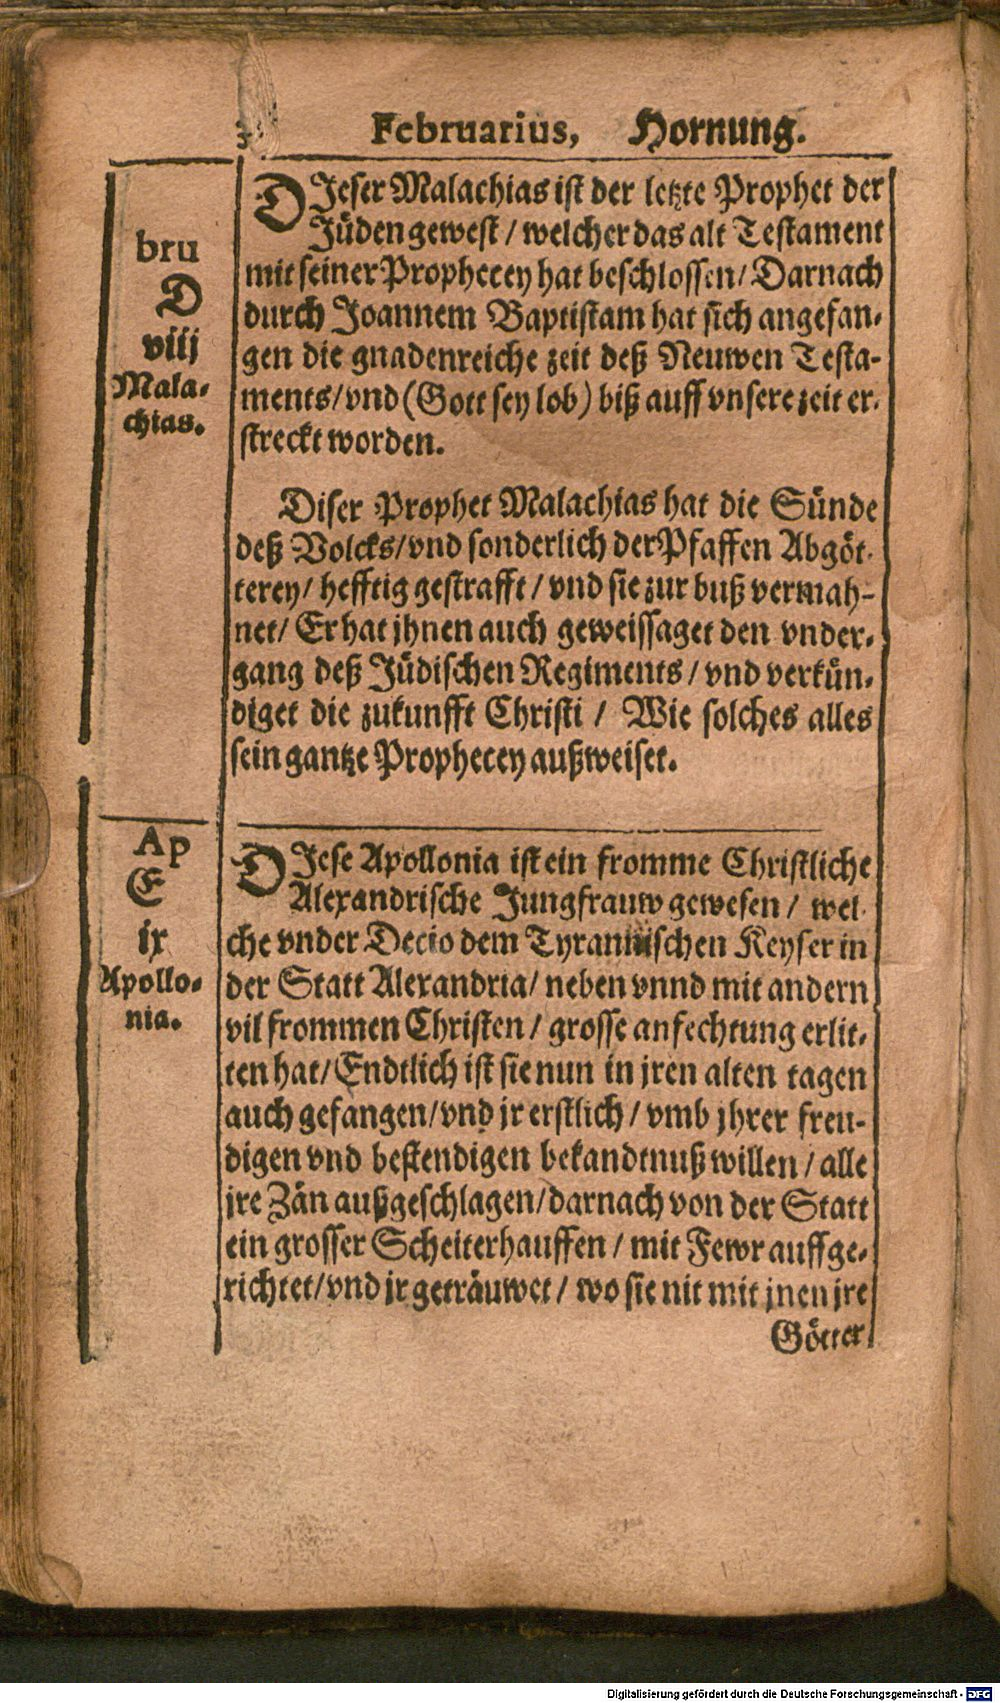 Februarius, Hornung.
bru
D
viij
Mala-
chias.
DIeser Malachias ist der letzte Prophet der
Jüden gewest / welcher das alt Testament
mit seiner Prophecey hat beschlossen / Darnach
durch Joannem Baptistam hat sich angefan-
gen die gnadenreiche zeit deß Neuwen Testa-
ments / vnd (Gott sey lob) biß auff vnsere zeit er-
streckt worden.
Diser Prophet Malachias hat die Sünde
deß Volcks / vnd sonderlich der Pfaffen Abgöt-
terey / hefftig gestrafft / vnd sie zur buß vermah-
net / Er hat jhnen auch geweissaget den vnder-
gang deß Jüdischen Regiments / vnd verkün-
diget die zukunfft Christi / Wie solches alles
sein gantze Prophecey außweiset.
Ap
E
ix
Apollo-
nia.
DIese Apollonia ist ein fromme Christliche
Alexandrische Jungfrauw gewesen / wel-
che vnder Decio dem Tyrannischen Keyser in
der Statt Alexandria / neben vnnd mit andern
vil frommen Christen / grosse anfechtung erlit-
ten hat / Endtlich ist sie nun in jren alten tagen
auch gefangen / vnd jr erstlich / vmb jhrer freu-
digen vnd bestendigen bekandtnuß willen / alle
jre Zän außgeschlagen / darnach von der Statt
ein grosser Scheiterhauffen / mit Fewr auffge-
richtet / vnd jr geträuwet / wo sie nit mit jnen jre
Götter
Digitalisierung gefördert durch die Deutsche Forschungsgemeinschaft - DFG